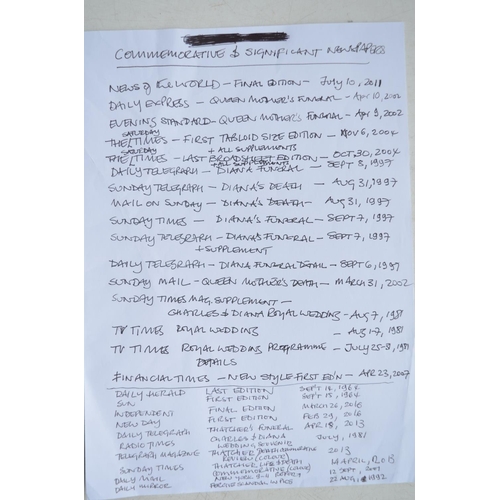 COMMEMORATIVE & SIGNIFICANT NEWSPAPERS
NEWS of the WORLD - FINAL EDITION - July 10, 2011
DAILY EXPRESS - QUEEN MOTHER'S FUNERAL - Apr 10, 2002
EVENING STANDARD - QUEEN MOTHER'S FUNERAL - Apr 9, 2002
SATURDAY
THE TIMES - FIRST TABLOID SIZE EDITION - NOV 6, 2004
SATURDAY + ALL SUPPLEMENTS
THE TIMES - LAST BROADSHEET EDITION - OCT 30, 2004
+ ALL SUPPLEMENTS
DAILY TELEGRAPH - DIANA FUNERAL - SEPT 8, 1997
SUNDAY TELEGRAPH - DIANA'S DEATH - AUG 31, 1997
MAIL ON SUNDAY - DIANA'S DEATH - AUG 31, 1997
SUNDAY TIMES - DIANA'S FUNERAL - SEPT 7, 1997
SUNDAY TELEGRAPH - DIANA'S FUNERAL - SEPT 7, 1997
+ SUPPLEMENT
DAILY TELEGRAPH - DIANA FUNERAL DETAIL - SEPT 6, 1997
SUNDAY MAIL - QUEEN MOTHER'S DEATH - MARCH 31, 2002
SUNDAY TIMES MAG. SUPPLEMENT -
CHARLES & DIANA ROYAL WEDDING - Aug 7, 1981
TV TIMES ROYAL WEDDING - Aug 1-7, 1981
TV TIMES ROYAL WEDDING PROGRAMME - JULY 25-31, 1981
DETAILS
FINANCIAL TIMES - NEW STYLE FIRST ED'N - APR 23, 2007
DAILY HERALD LAST EDITION SEPT 14, 1964
SUN FIRST EDITION SEPT 15, 1964
INDEPENDENT FINAL EDITION MARCH 26, 2016
NEW DAY FIRST EDITION FEB 29, 2016
DAILY TELEGRAPH THATCHER'S FUNERAL APR 18, 2013
RADIO TIMES CHARLES & DIANA JULY, 1981
WEDDING SOUVENIR
TELEGRAPH MAGAZINE THATCHER DEATH COMMEMORATIVE 2013
REVIEW (COLOUR)
SUNDAY TIMES THATCHER LIFE & DEATH 14 APRIL, 2013
COMMEMORATIVE (COLOUR)
DAILY MAIL NEW YORK 9-11 REPORT 12 SEPT, 2001
DAILY MIRROR 22 AUG, 1992